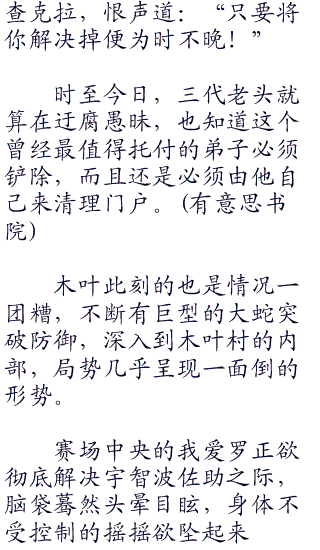 查克拉，恨声道：“只要将
你解决掉便为时不晚！”
时至今日，三代老头就
算在迂腐愚昧，也知道这个
曾经最值得托付的弟子必须
铲除，而且还是必须由他自
己来清理门户。(有意思书
院)
木叶此刻的也是情况一
团糟，不断有巨型的大蛇突
破防御，深入到木叶村的内
部，局势几乎呈现一面倒的
形势。
赛场中央的我爱罗正欲
彻底解决宇智波佐助之际，
脑袋蓦然头晕目眩，身体不
受控制的摇摇欲坠起来